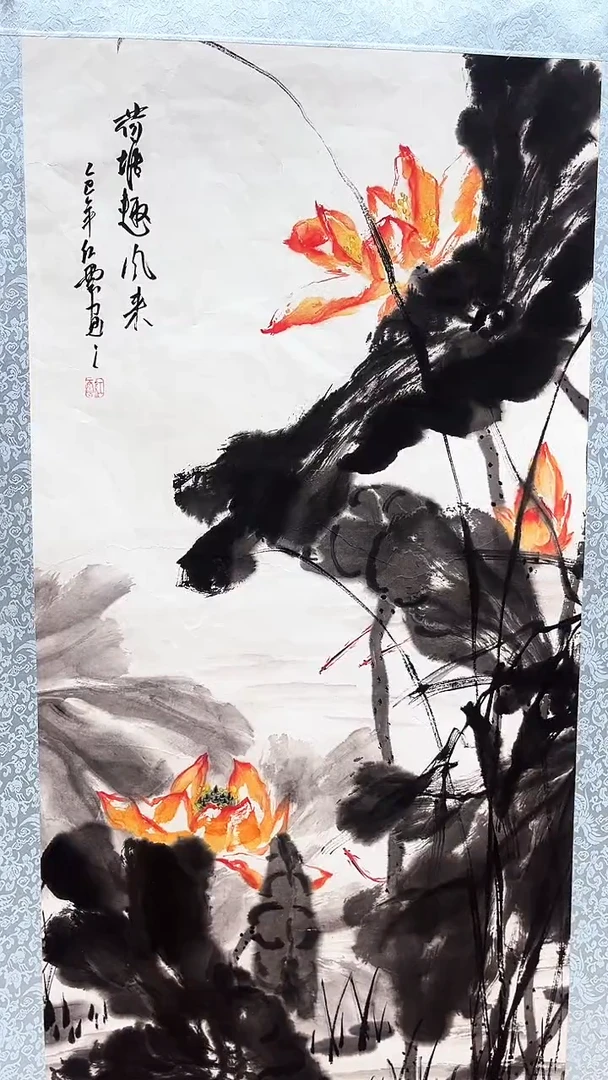 荷塘趣风来
乙巳年红云画之